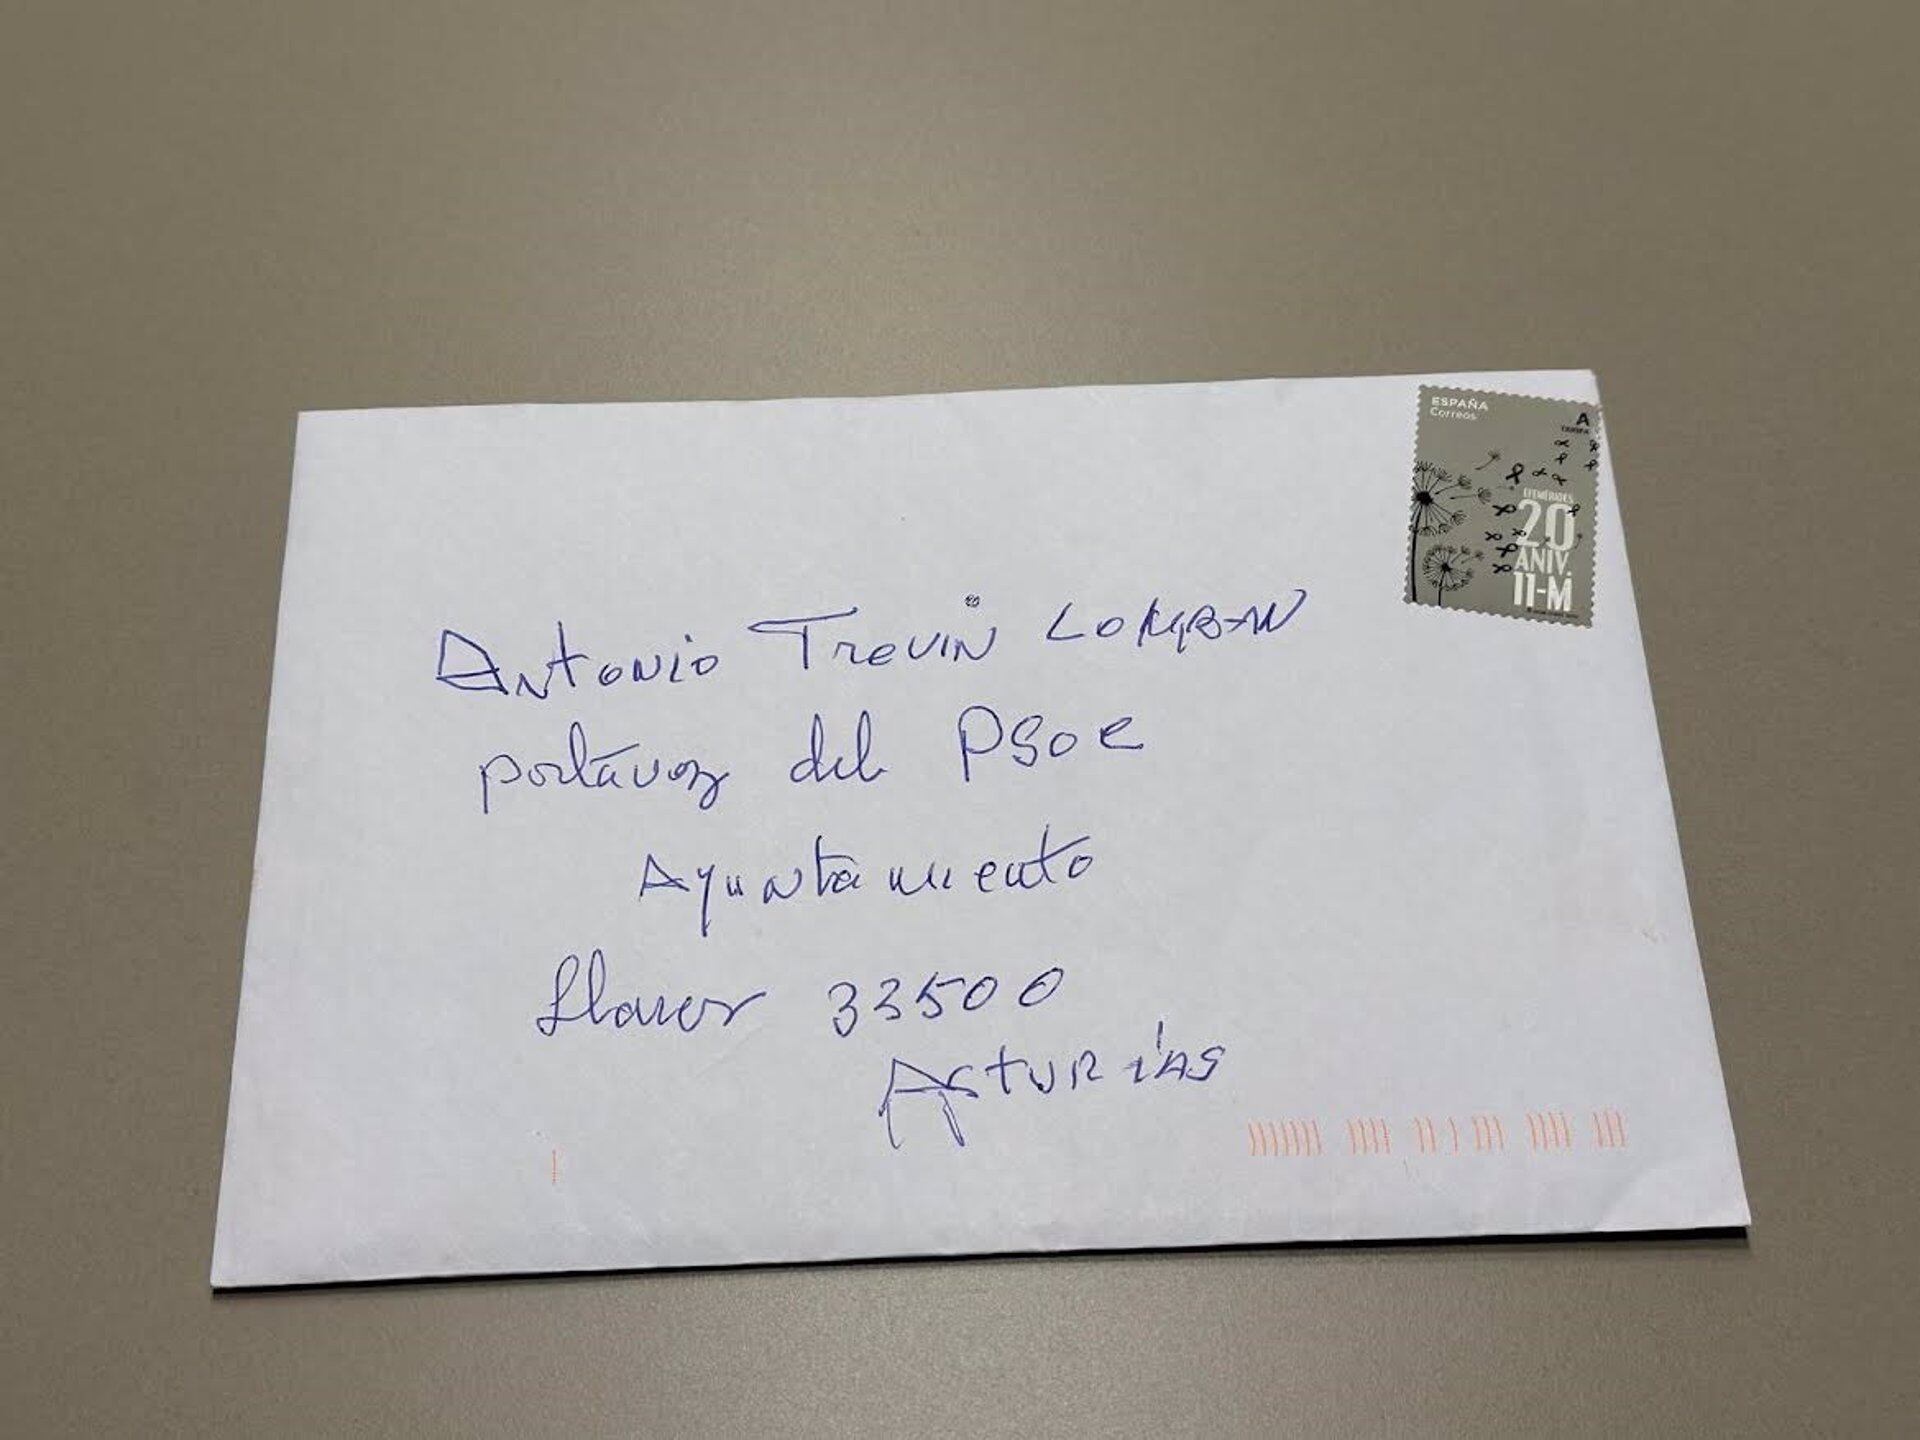 ESPAÑA
Correos
A
TARIFA
EFEMÉRIDES
20
ANIV.
11-M
Antonio Trevin LOMBAN
portavoz del PSOE
Ayuntamiento
Llanes 33500
ASTURIAS